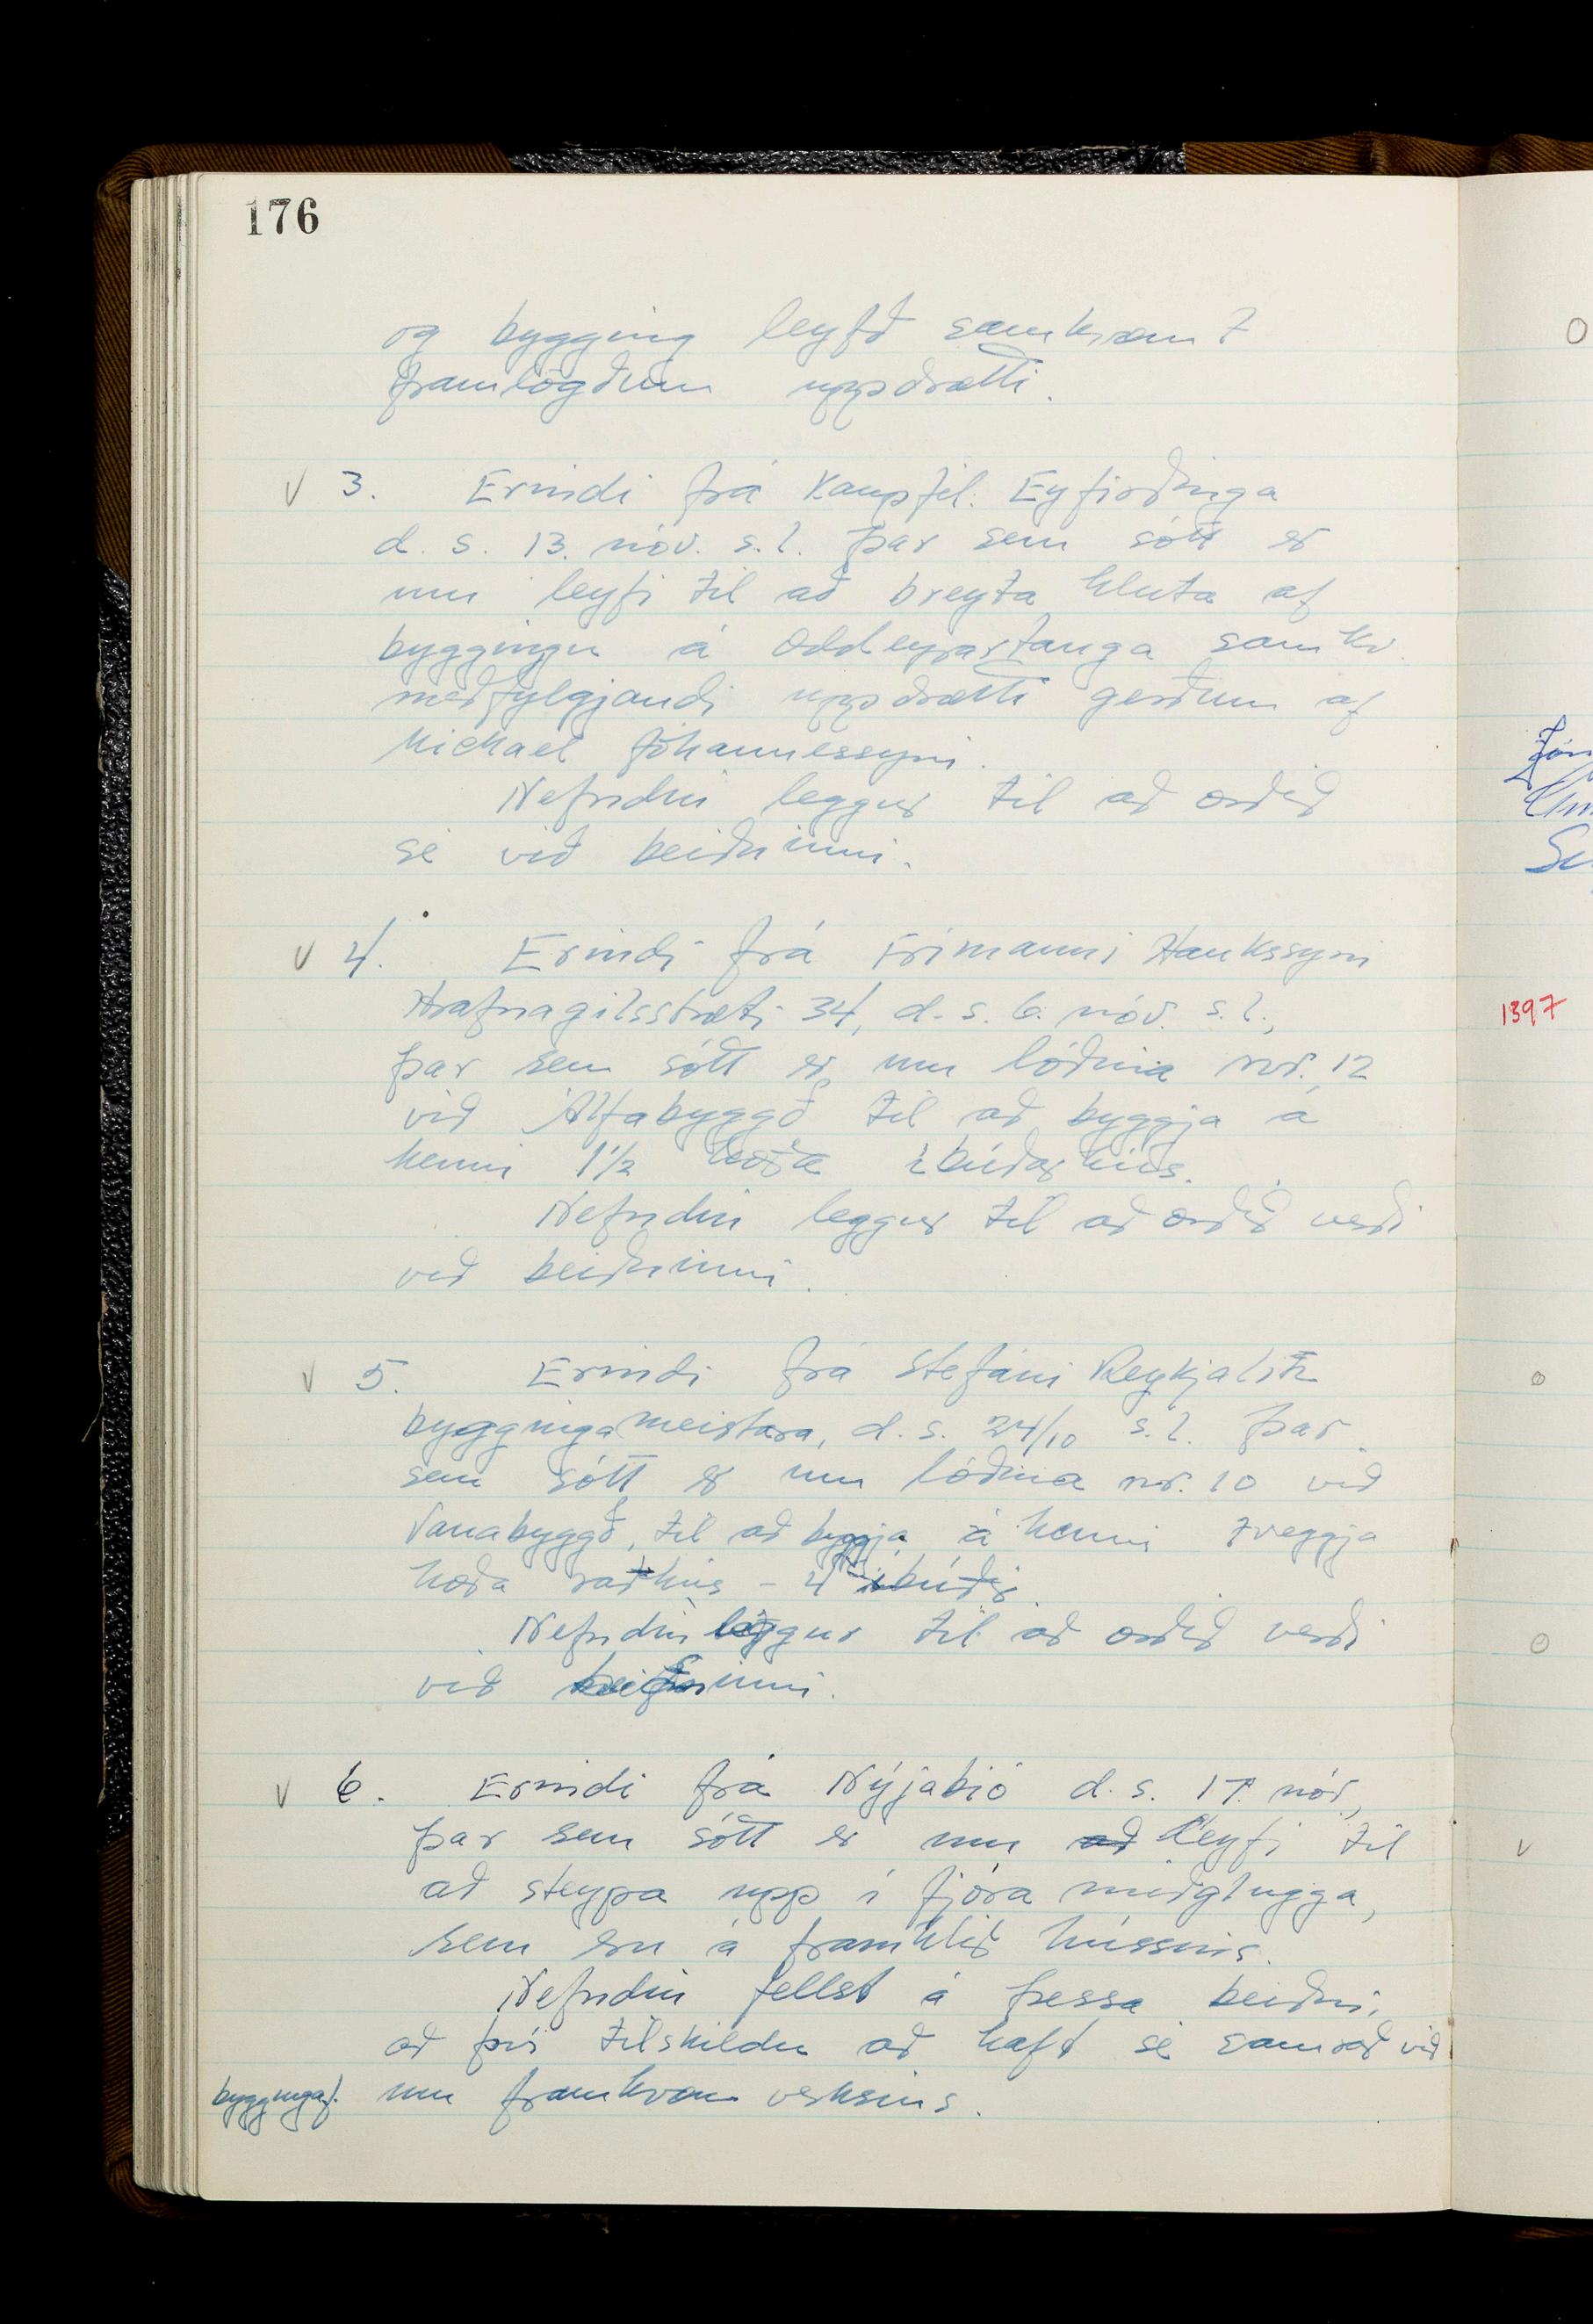 176
og bygging leyfð samkvæmt
framlögðum uppdrætti.
v 3. Erindi frá Kaupfél. Eyfirðinga
d. s. 13. nóv. s.l. þar sem sótt er
um leyfi til að breyta hluta af
byggingu á Oddeyrartanga samkv.
meðfylgjandi uppdrætti gerðum af
Michael Jóhannessyni.
Nefndin leggur til að orðið
sé við beiðninni.
v 4. Erindi frá Frímanni Haukssyni
Hrafnagilsstræti 34, d. s. 6. nóv. s.l.,
þar sem sótt er um lóðina nr. 12
við Álfabyggð til að byggja á
henni 1 1/2 hæða íbúðarhús.
Nefndin leggur til að orðið verði
við beiðninni.
v 5. Erindi frá Stefáni Reykjalín
byggingameistara, d. s. 24/10 s.l. þar
sem sótt er um lóðina nr. 10 við
Vanabyggð, til að byggja á henni tveggja
hæða raðhús - 4 íbúðir
Nefndin leggur til að orðið verði
við beiðninni.
v 6. Erindi frá Nýjabíó d. s. 17. nóv,
þar sem sótt er um að leyfi til
að steypa upp í fjóra miðglugga,
sem eru á framhlið hússins.
Nefndin fellst á þessa beiðni,
að því tilskildu að haft sé samráð við
byggingaf. um framkvæm verksins.
Jón
1397
v